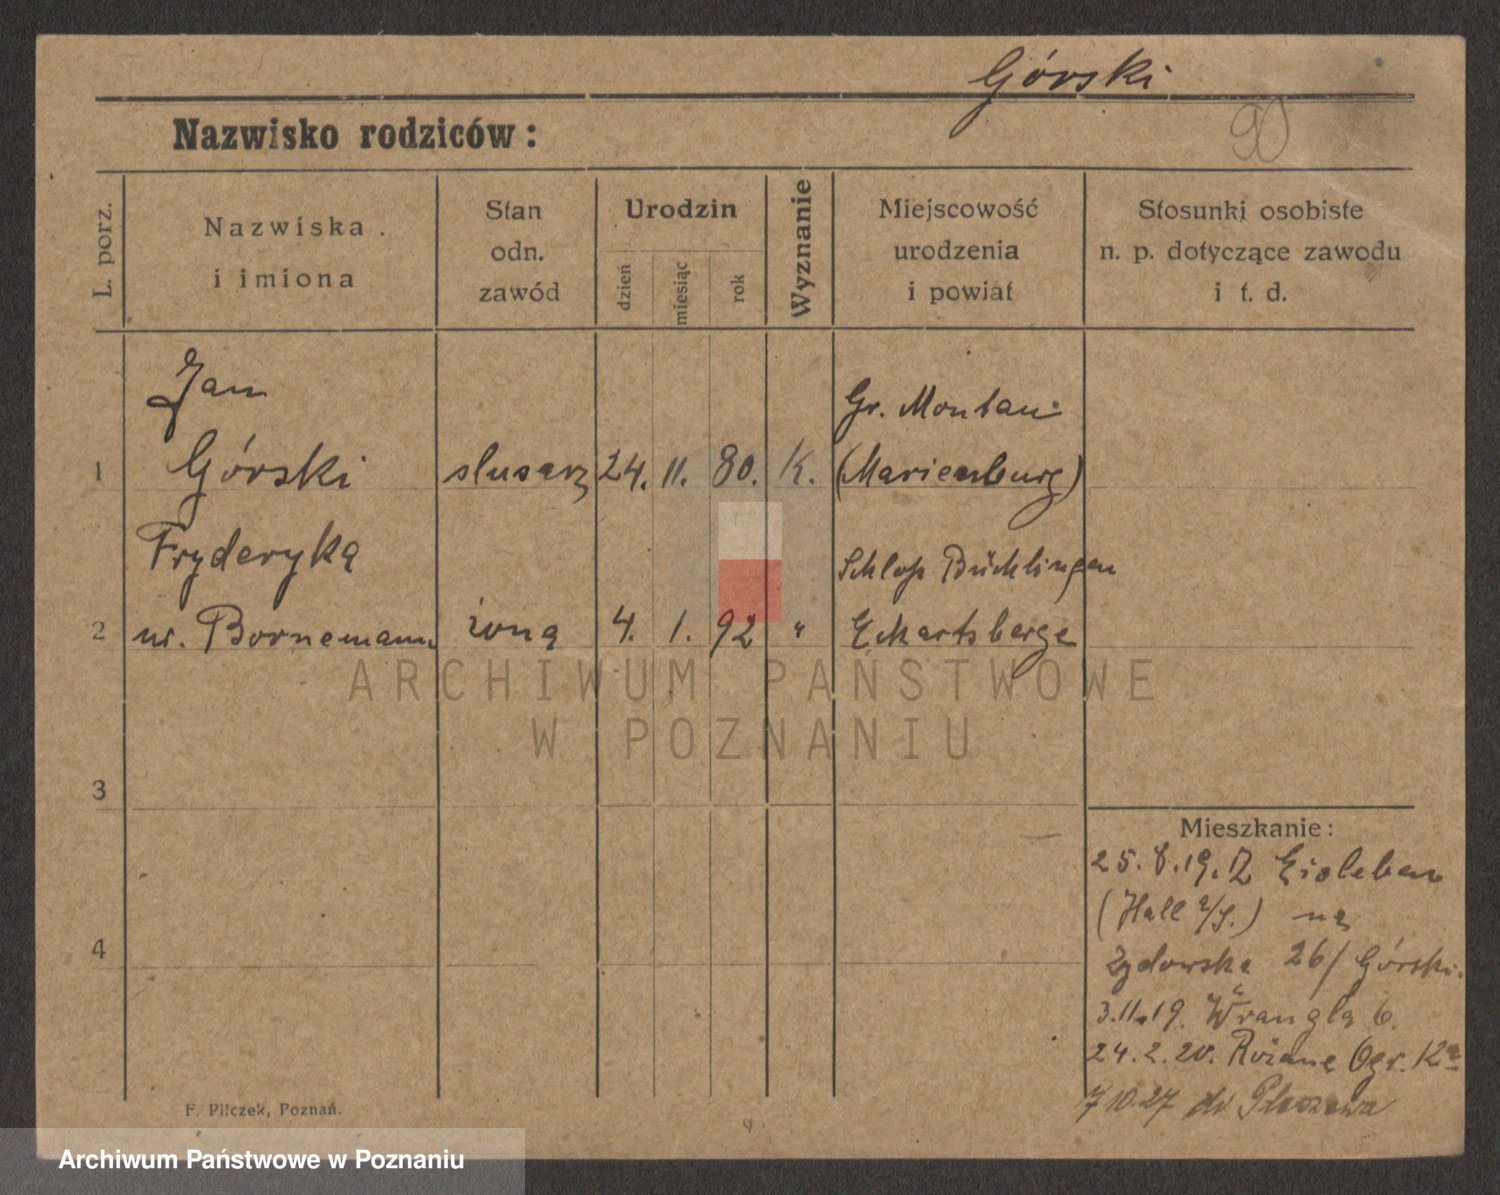 Górski
90
Nazwisko rodziców:
L. porz.
Nazwiska
i imiona
Stan
odn.
zawód
Urodzin
dzień
miesiąc
rok
Wyznanie
Miejscowość
urodzenia
i powiat
Stosunki osobiste
n. p. dotyczące zawodu
i t. d.
Jan
Gr. Montau
1 Górski slusarz 24. 11. 80. K. (Marienburg)
Fryderyka
Schloß Büchlingen
2 ur. Bornemann żona 4. 1. 92 " Eckartsberge
ARCHIWUM PAŃSTWOWE
W POZNANIU
3
Mieszkanie:
25.8.19. Z Eisleben
(Hall a/S.) na
4
Zydowska 26/ Górski.
3.11.19. Wrangla 6.
24.2.20. Różana Ogr. 12a
7 10.27 do
F. Pilczek, Poznań.
Archiwum Państwowe w Poznaniu